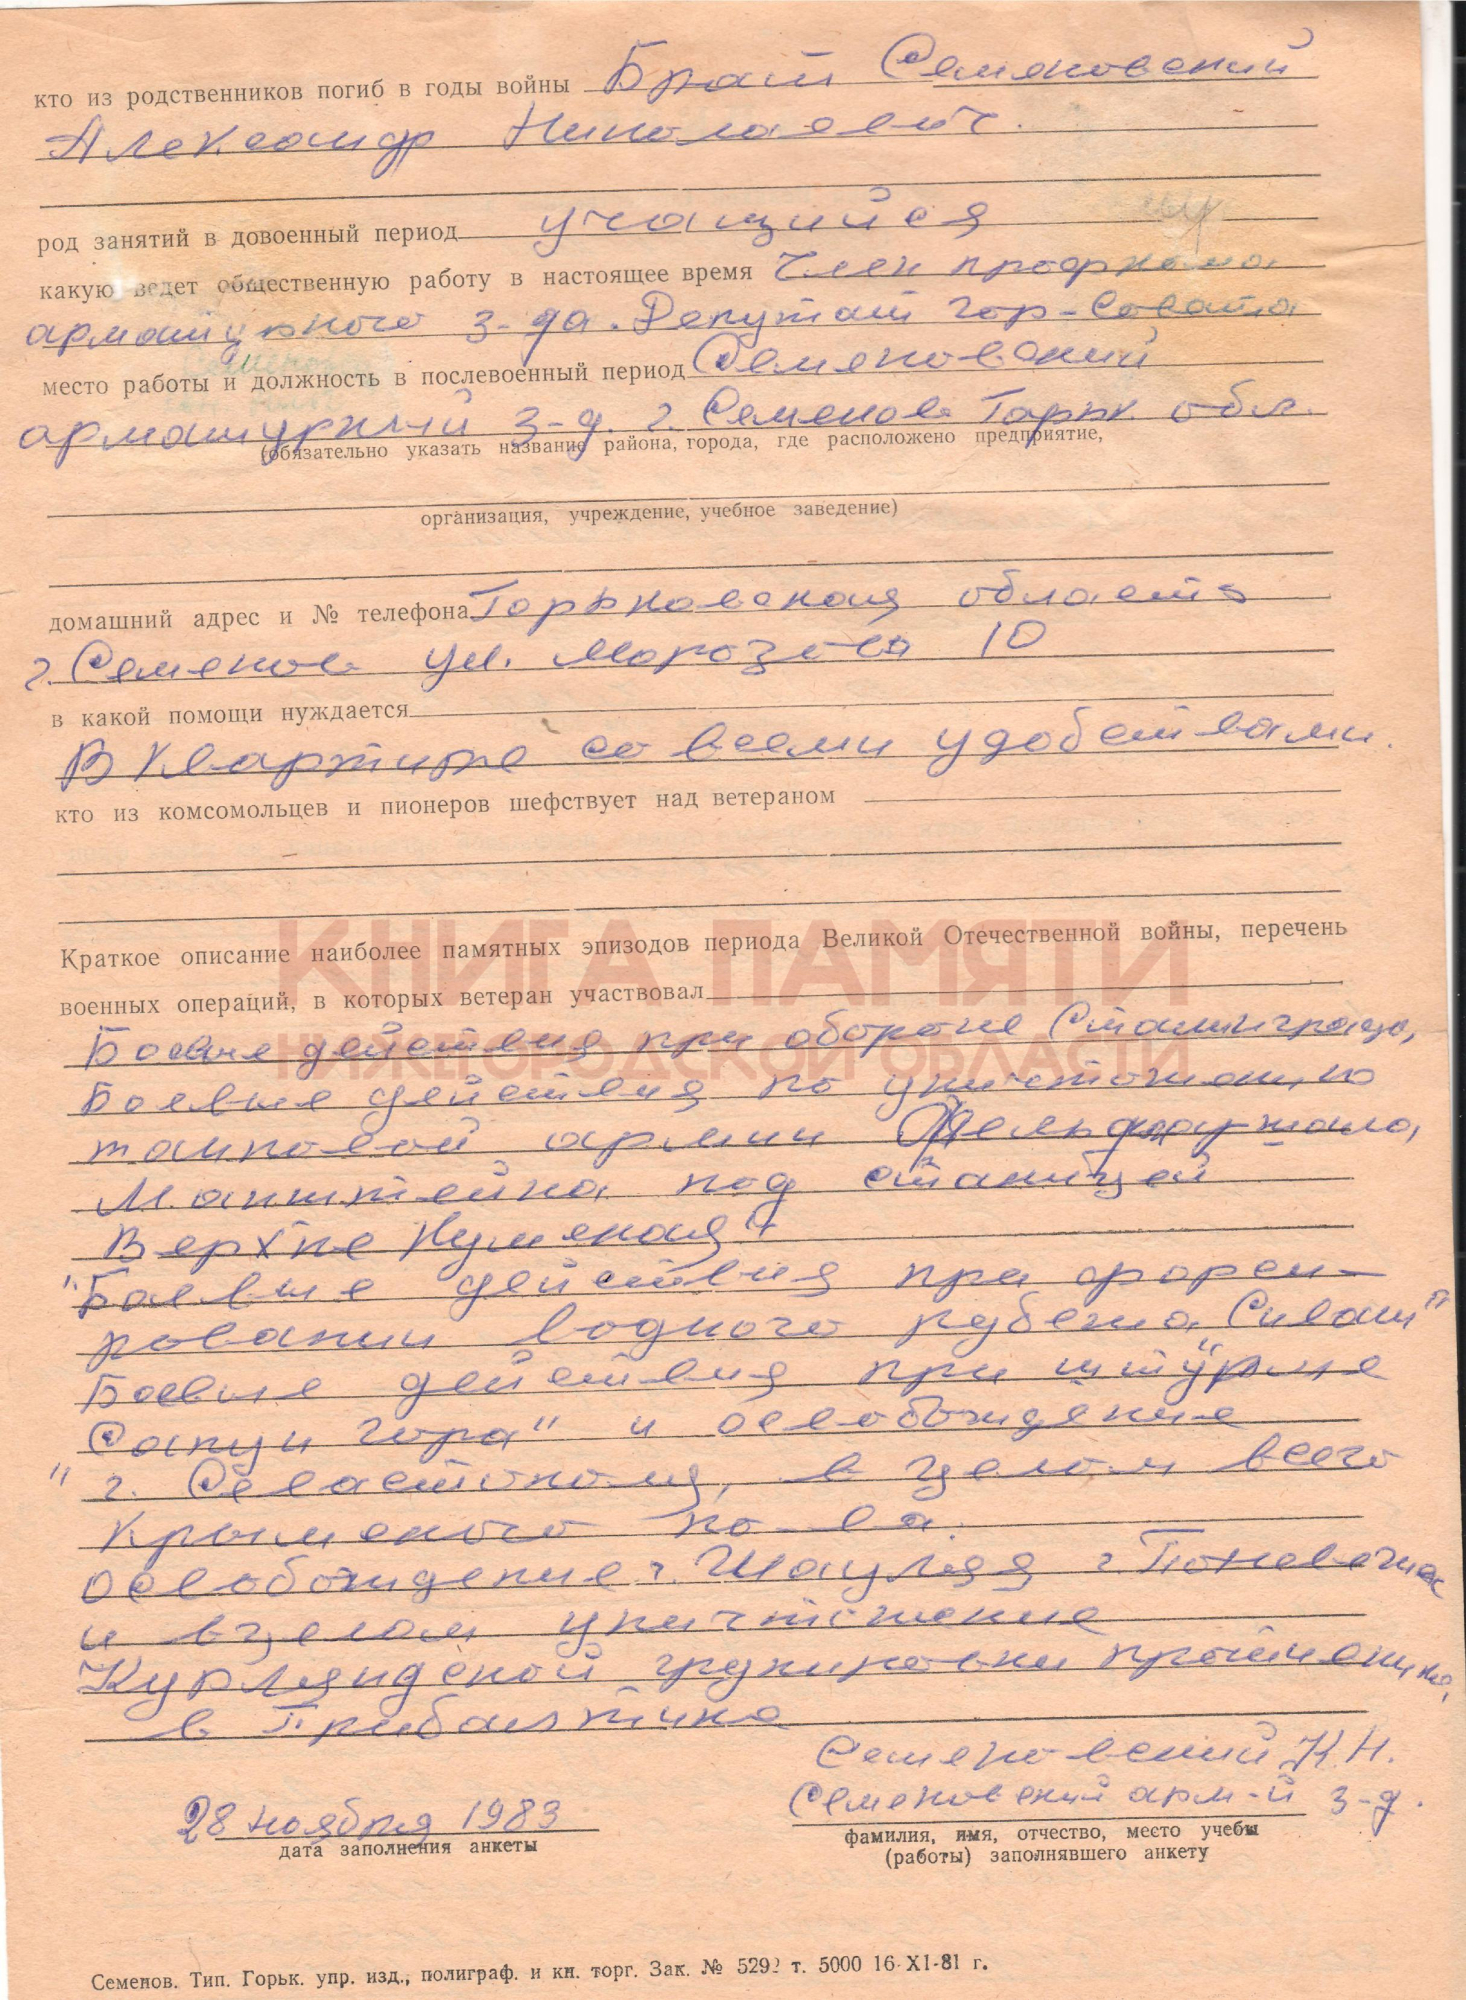 кто из родственников погиб в годы войны Брат Семеновский
Александр Николаевич.
род занятий в довоенный период учащийся
какую ведет общественную работу в настоящее время Член профкома
арматурного з-да. Депутат гор-Совета
место работы и должность в послевоенный период Семеновский
арматурный з-д. г. Семенов Горьк. обл.
(обязательно указать название района, города, где расположено предприятие,
организация, учреждение, учебное заведение)
домашний адрес и № телефона Горьковская область
г. Семенов ул. Морозова 10
в какой помощи нуждается
В квартире со всеми удобствами.
кто из комсомольцев и пионеров шефствует над ветераном
КНИГА ПАМЯТИ
НИЖЕГОРОДСКОЙ ОБЛАСТИ
Краткое описание наиболее памятных эпизодов периода Великой Отечественной войны, перечень
военных операций, в которых ветеран участвовал
Боевые действия при обороне Сталинграда,
Боевые действия по уничтожению
танковой армии Фельдмаршала,
Манштейна под станицей
Верхне Кумская"
"Боевые действия при форси-
ровании водного рубежа Сиваш"
Боевые действия при штурме
"Сапун гора" и освобождение
" г. Севастополя, в целом всего
Крымского по-ва.
Освобождение г. Шауляя г. Поневежис
и вцелом уничтожение
Курляндской групировки противника,
в Прибалтике
Семеновский К.Н.
Семеновский арм-й з-д.
28 ноября 1983
дата заполнения анкеты
фамилия, имя, отчество, место учебы
(работы) заполнявшего анкету
Семенов. Тип. Горьк. упр. изд., полиграф. и кн. торг. Зак. № 5292 т. 5000 16-XI-81 г.